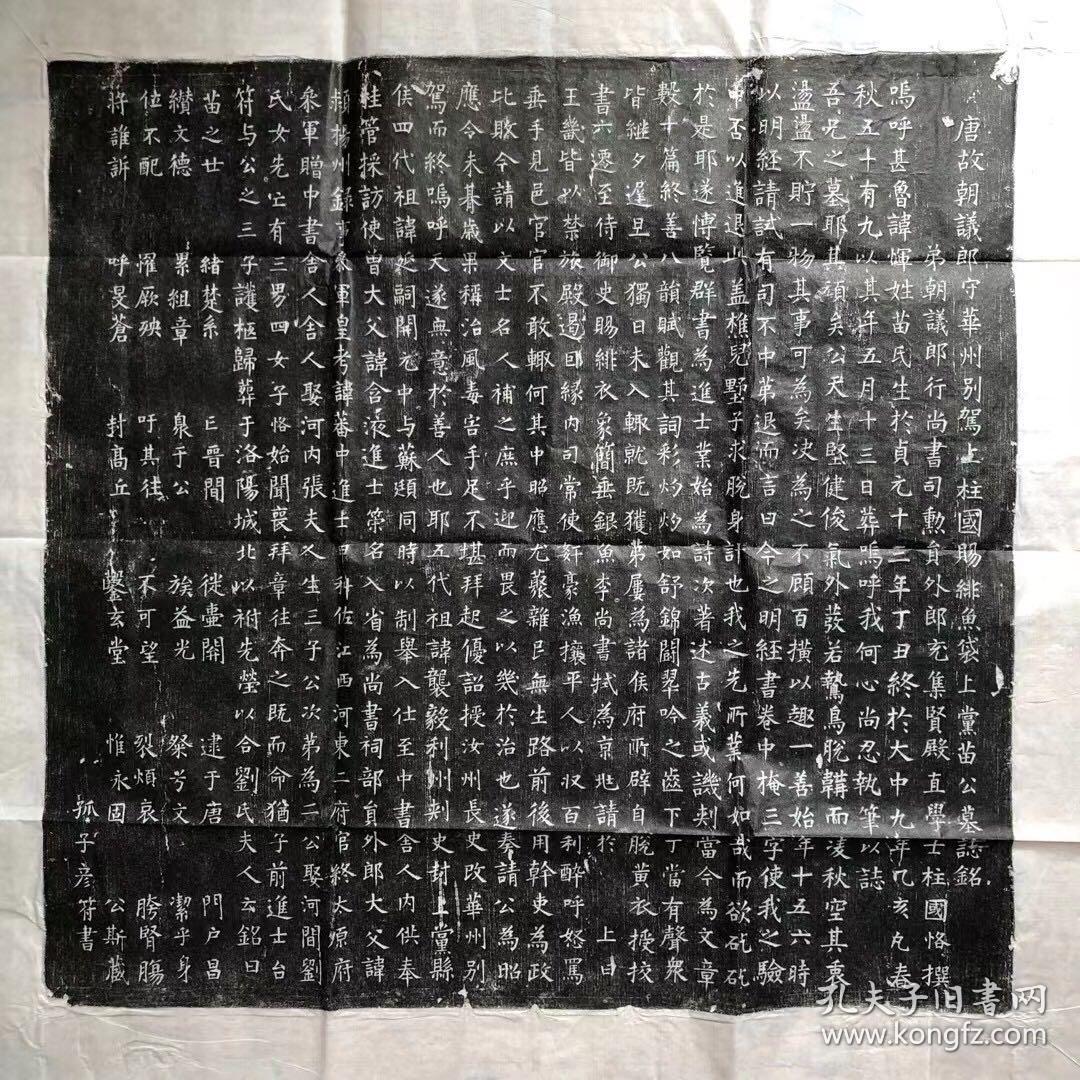 唐故朝議郎守華州別駕上柱國賜緋魚袋上黨苗公墓誌銘
弟朝議郎行尚書司勳員外郎充集賢殿直學士柱國恪撰
嗚呼甚魯諱惲姓苗氏生於貞元十三年丁丑終於大中九年乙亥凡春
秋五十有九以其年五月十三日葬嗚呼我何心尚忍執筆以誌
吾兄之墓耶其禎矣公天生堅健俊氣外發若鷙鳥脫韝而淩秋空其裏
盪盪不貯一物其事可為矣決為之不顧百橫以趣一善始年十五六時
以明經請試有司不中第退而言曰今之明經書卷中掩三字使我之驗
中否以進退此蓋樵兒墅子求脫身計也我之先所業何如哉而欲矻矻
於是耶遂愽覽群書為進士業始為詩次著述古義或譏刾當今為文章
數十篇終善八韻賦觀其詞彩灼灼如舒錦闘翠吟之齒下丁當有聲衆
皆継夕達旦公獨日未入輙就既獲苐屢為諸侯府所辟自脫黃衣授挍
書六遷至侍御史賜緋衣象簡垂銀魚李尚書拭為京兆請於 上曰
王畿皆以禁旅殿邊囙緣内司常使姧豪漁攘平人以収百利醉呼怒罵
垂手見邑官官不敢輙何其中昭應尤藂雜民無生路前後用幹吏為政
比賕令請以文士名人補之庶乎迎而畏之以幾於治也遂奏請公為昭
應令未朞歲果稱治風毒宕手足不堪拜起優詔授汝州長史改華州別
駕而終嗚呼天遂無意於善人也耶五代祖諱襲毅利州刾史封上黨縣
侯四代祖諱延嗣開元中与蘇頲同時以制舉入仕至中書舍人内供奉
桂管採訪使曽大父諱含液進士第名入省為尚書祠部員外郎大父諱
頴楊州錄事叅軍皇考諱蕃中進士甲科佐江西河東二府官終太原府
叅軍贈中書舍人舍人娶河内張夫人生三子公次第為二公娶河間劉
氏女先亡有三男四女子恪始聞喪拜章往奔之既而命猶子前進士台
符与公之三子護柩歸葬于洛陽城北以祔先塋以合劉氏夫人云銘曰
苗之廿 緒楚系 亡晉間 徙壷關 逮于唐 門户昌
纘文德 累組章 臮于公 族益光 粲芳文 潔乎身
位不配 懼厥殃 吁其往 不可望 裂煩哀 胯腎膓
将誰訴 呼旻蒼 封髙丘 鑿玄堂 惟永固 公斯藏
孤子彦符書
孔夫子旧书网
www.kongfz.com